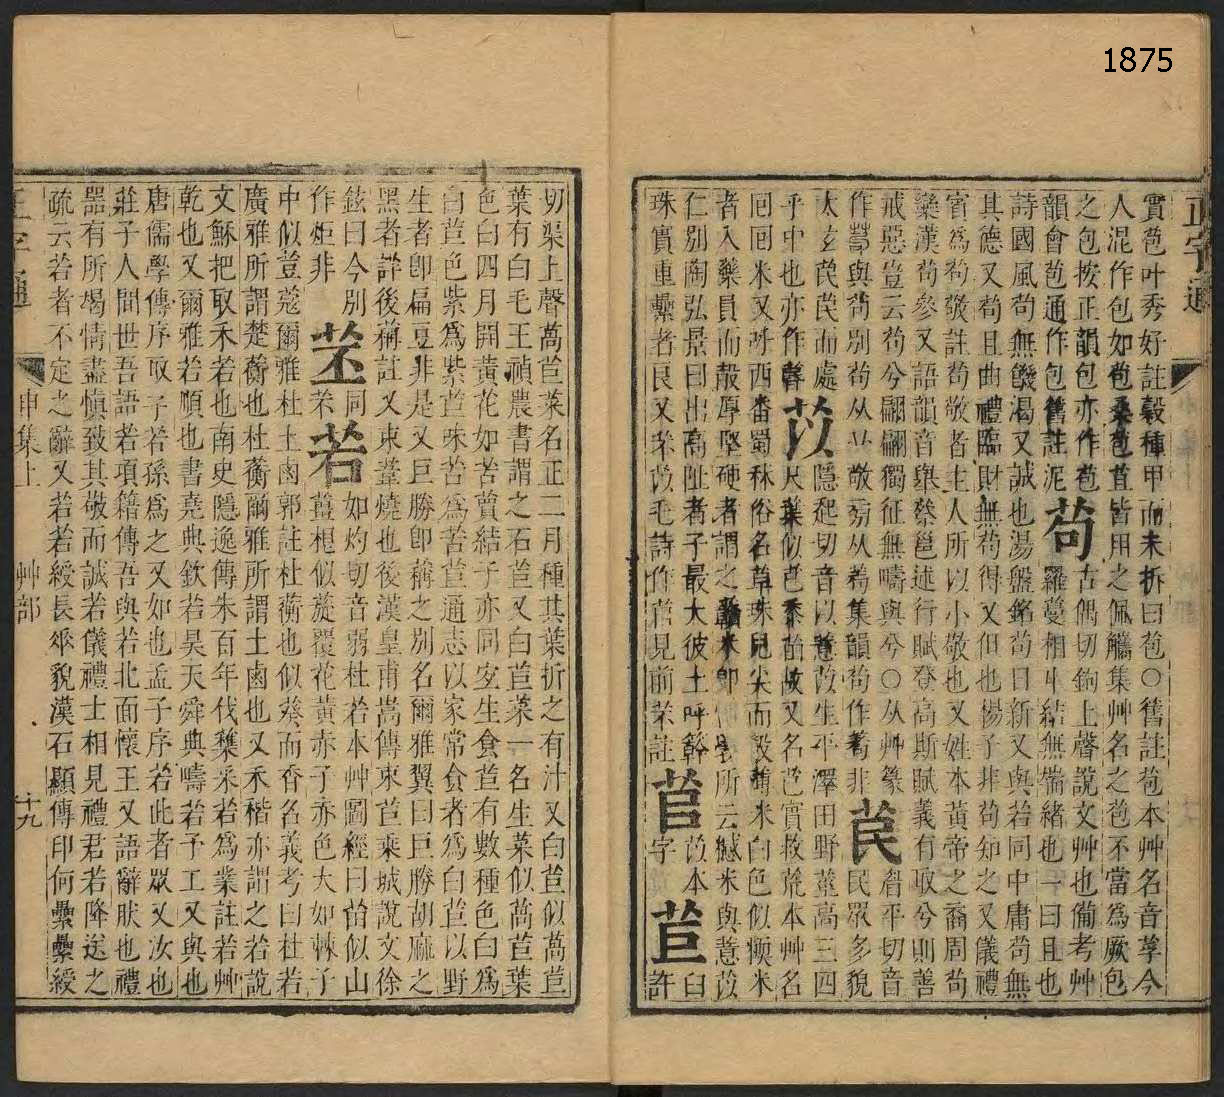 1875
正字通
實苞叶秀好註穀種甲而未拆曰苞○舊註苞本艸名音莩今
人混作包如苞桑苞苴皆用之佩觿集艸名之苞不當為厥包
之包按正韻包亦作苞
韻會苞通作包舊註泥
苟
古偶切鉤上聲說文艸也備考艸
羅蔓相屮結無耑緒也一曰且也
詩國風苟無饑渴又誠也湯盤銘苟日新又與若同中庸苟無
其德又苟且曲禮臨財無苟得又但也揚子非苟知之又儀禮
賓為苟敬註苟敬者主人所以小敬也又姓本黃帝之裔周苟
欒漢苟參又語韻音舉蔡邕述行賦登高斯賦義有取兮則善
戒惡豈云苟兮翩翩獨征無疇與兮○从艸篆
作 與茍別茍从 敬 从 集韻苟作 非
苠
眉平切音
民眾多貌
太玄苠苠而處
乎中也亦作
苡
隱起切音以薏苡生平澤田野莖高三四
尺葉似芑黍苗故又名芑實救荒本艸名
回回米又呼西番蜀秫俗名草珠兒尖而殼薄米白色似糯米
者入藥員而殼厚堅硬者謂之 米卽 所云 米與薏苡
仁別陶弘景曰出高阯者子最大彼土呼
珠實重纍者良又芣苡毛詩作苢見前芣註
苢
苡本
字
苣
臼
許
切渠上聲萵苣菜名正二月種其葉折之有汁又白苣似萵苣
葉有白毛王禎農書謂之石苣又白苣菜一名生菜似萵苣葉
色白四月開黃花如苦蕒結子亦同宐生食苣有數種色白為
白苣色紫為紫苣味苦為苦苣通志以家常食者為白苣以野
生者卽扁豆非是又巨勝卽藊之別名爾雅翼曰巨勝胡麻之
黑者詳後藊註又束葦燒也後漢皇甫嵩傳束苣乘城說文徐
鉉曰今別
作炬非
苤
同
芣
若
如灼切音弱杜若本艸圖經曰苗似山
薑根似旋覆花黃赤子亦色大如棘子
中似荳蔻爾雅杜土鹵郭註杜蘅也似葵而香名義考曰杜若
廣雅所謂楚蘅也杜蘅爾雅所謂土鹵也又禾稭亦謂之若說
文穌把取禾若也南史隱逸傳朱百年伐樵采若為業註若艸
乾也又爾雅若順也書堯典欽若昊天舜典疇若予工又與也
唐儒學傳序取子若孫為之又如也孟子序若此者眾又汝也
莊子人閒世吾語若項籍傳吾與若北面懷王又語辭肰也禮
器有所竭情盡愼致其敬而誠若儀禮士相見禮君若降送之
疏云若者不定之辭又若若綬長𠂹貌漢石顯傳印何纍纍綬
正字通
申集上
艸部
十九